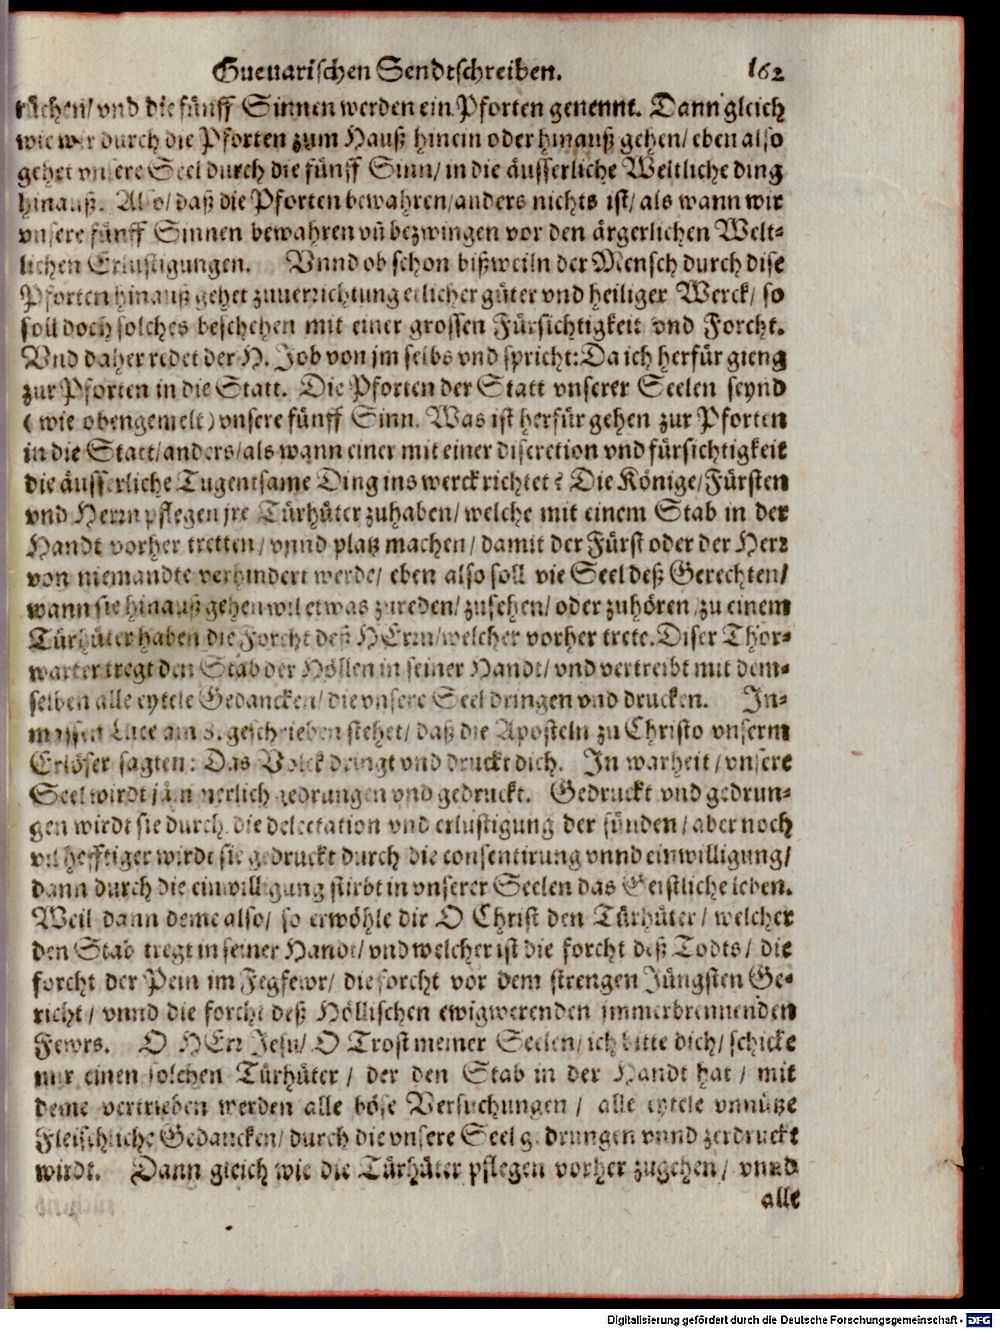 Gueuarischen Sendtschreiben. 162
rüchen/ vnd die fünff Sinnen werden ein Pforten genennt. Dann gleich
wie wir durch die Pforten zum Hauß hinein oder hinauß gehen/ eben also
gehet vnsere Seel durch die fünff Sinn/ in die äusserliche Weltliche ding
hinauß. Also/ daß die Pforten bewahren/ anders nichts ist/ als wann wir
vnsere fünff Sinnen bewahren vñ bezwingen vor den ärgerlichen Welt-
lichen Erlustigungen. Vnnd ob schon bißweiln der Mensch durch dise
Pforten hinauß gehet zuuerrichtung etlicher güter vnd heiliger Werck/ so
soll doch solches beschehen mit einer grossen Fürsichtigkeit vnd Forcht.
Vnd daher redet der H. Job von jm selbs vnd spricht: Da ich herfür gieng
zur Pforten in die Statt. Die Pforten der Statt vnserer Seelen seynd
(wie obengemelt) vnsere fünff Sinn. Was ist herfür gehen zur Pforten
in die Statt/ anders/ als wann einer mit einer discretion vnd fürsichtigkeit
die äusserliche Tugentsame Ding ins werck richtet? Die Könige/ Fürsten
vnd Herrn pflegen jre Türhüter zuhaben/ welche mit einem Stab in der
Handt vorher tretten/ vnnd platz machen/ damit der Fürst oder der Herr
von niemandte verhindert werde/ eben also soll die Seel deß Gerechten/
wann sie hinauß gehen wil etwas zureden/ zusehen/ oder zuhören zu einem
Türhüter haben die Forcht deß HErrn/ welcher vorher trete. Diser Thor-
warter tregt den Stab der Höllen in seiner Handt/ vnd vertreibt mit dem-
selben alle eytele Gedancken/ die vnsere Seel dringen vnd drucken. In-
massen Luce am 8. geschrieben stehet/ daß die Aposteln zu Christo vnserm
Erlöser sagten: Das Volck dringt vnd druckt dich. In warheit/ vnsere
Seel wirdt jämmerlich gedrungen vnd gedruckt. Gedruckt vnd gedrun-
gen wirdt sie durch die delectation vnd erlustigung der sünden/ aber noch
vil hefftiger wirdt sie gedruckt durch die consentirung vnnd einwilligung/
dann durch die einwilligung stirbt in vnserer Seelen das Geistliche leben.
Weil dann deme also/ so erwöhle dir O Christ den Türhüter/ welcher
den Stab tregt in seiner Handt/ vnd welcher ist die forcht deß Todts/ die
forcht der Pein im Fegfewr/ die forcht vor dem strengen Jüngsten Ge-
richt/ vnnd die forcht deß Höllischen ewigwerenden jmmerbrennenden
Fewrs. O HErr Jesu/ O Trost meiner Seelen/ ich bitte dich/ schicke
mir einen solchen Türhüter/ der den Stab in der Handt hat/ mit
deme vertrieben werden alle böse Versuchungen/ alle eytele vnnütze
Fleischliche Gedancken/ durch die vnsere Seel gedrungen vnnd zerdruckt
wirdt. Dann gleich wie die Türhüter pflegen vorher zugehen/ vnnd
alle
Digitalisierung gefördert durch die Deutsche Forschungsgemeinschaft - DFG